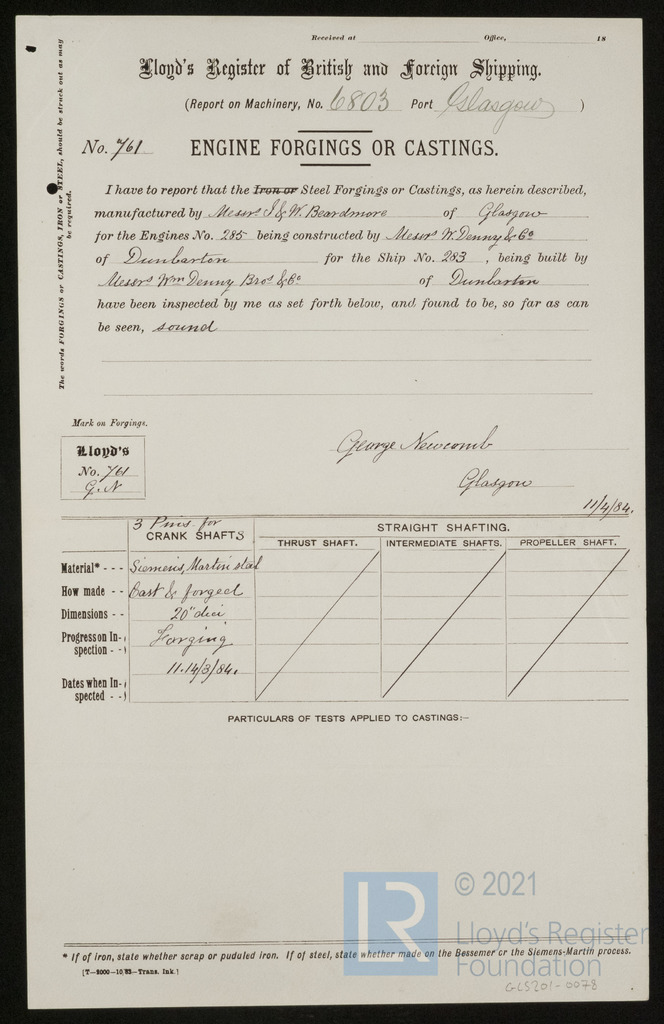 Received at Office, 18
Lloyd's Register of British and Foreign Shipping.
(Report on Machinery, No. 6803 Port Glasgow )
No. 761 ENGINE FORGINGS OR CASTINGS.
The words FORGINGS or CASTINGS, IRON or STEEL, should be struck out as may be required.
I have to report that the Iron or Steel Forgings or Castings, as herein described,
manufactured by Messrs I & W. Beardmore of Glasgow
for the Engines No. 285 being constructed by Messrs W. Denny & Co
of Dunbarton for the Ship No. 283 , being built by
Messrs Wm Denny Bros & Co of Dunbarton
have been inspected by me as set forth below, and found to be, so far as can
be seen, sound
Mark on Forgings.
Lloyd's
No. 761
G. N
George Newcomb
Glasgow
11/4/84.
3 Pins for
CRANK SHAFTS
STRAIGHT SHAFTING.
THRUST SHAFT. INTERMEDIATE SHAFTS. PROPELLER SHAFT.
Material* - - - Siemens, Martin steel
How made - - Cast & forged
Dimensions - - 20" dia
Progress on In-
spection - - Forging
11.14/3/84.
Dates when In-
spected - -
PARTICULARS OF TESTS APPLIED TO CASTINGS:—
LR © 2021
Lloyd's Register
Foundation
* If of iron, state whether scrap or puduled iron. If of steel, state whether made on the Bessemer or the Siemens-Martin process.
[T—2000—10,83—Trans. Ink.]
GLS201-0078